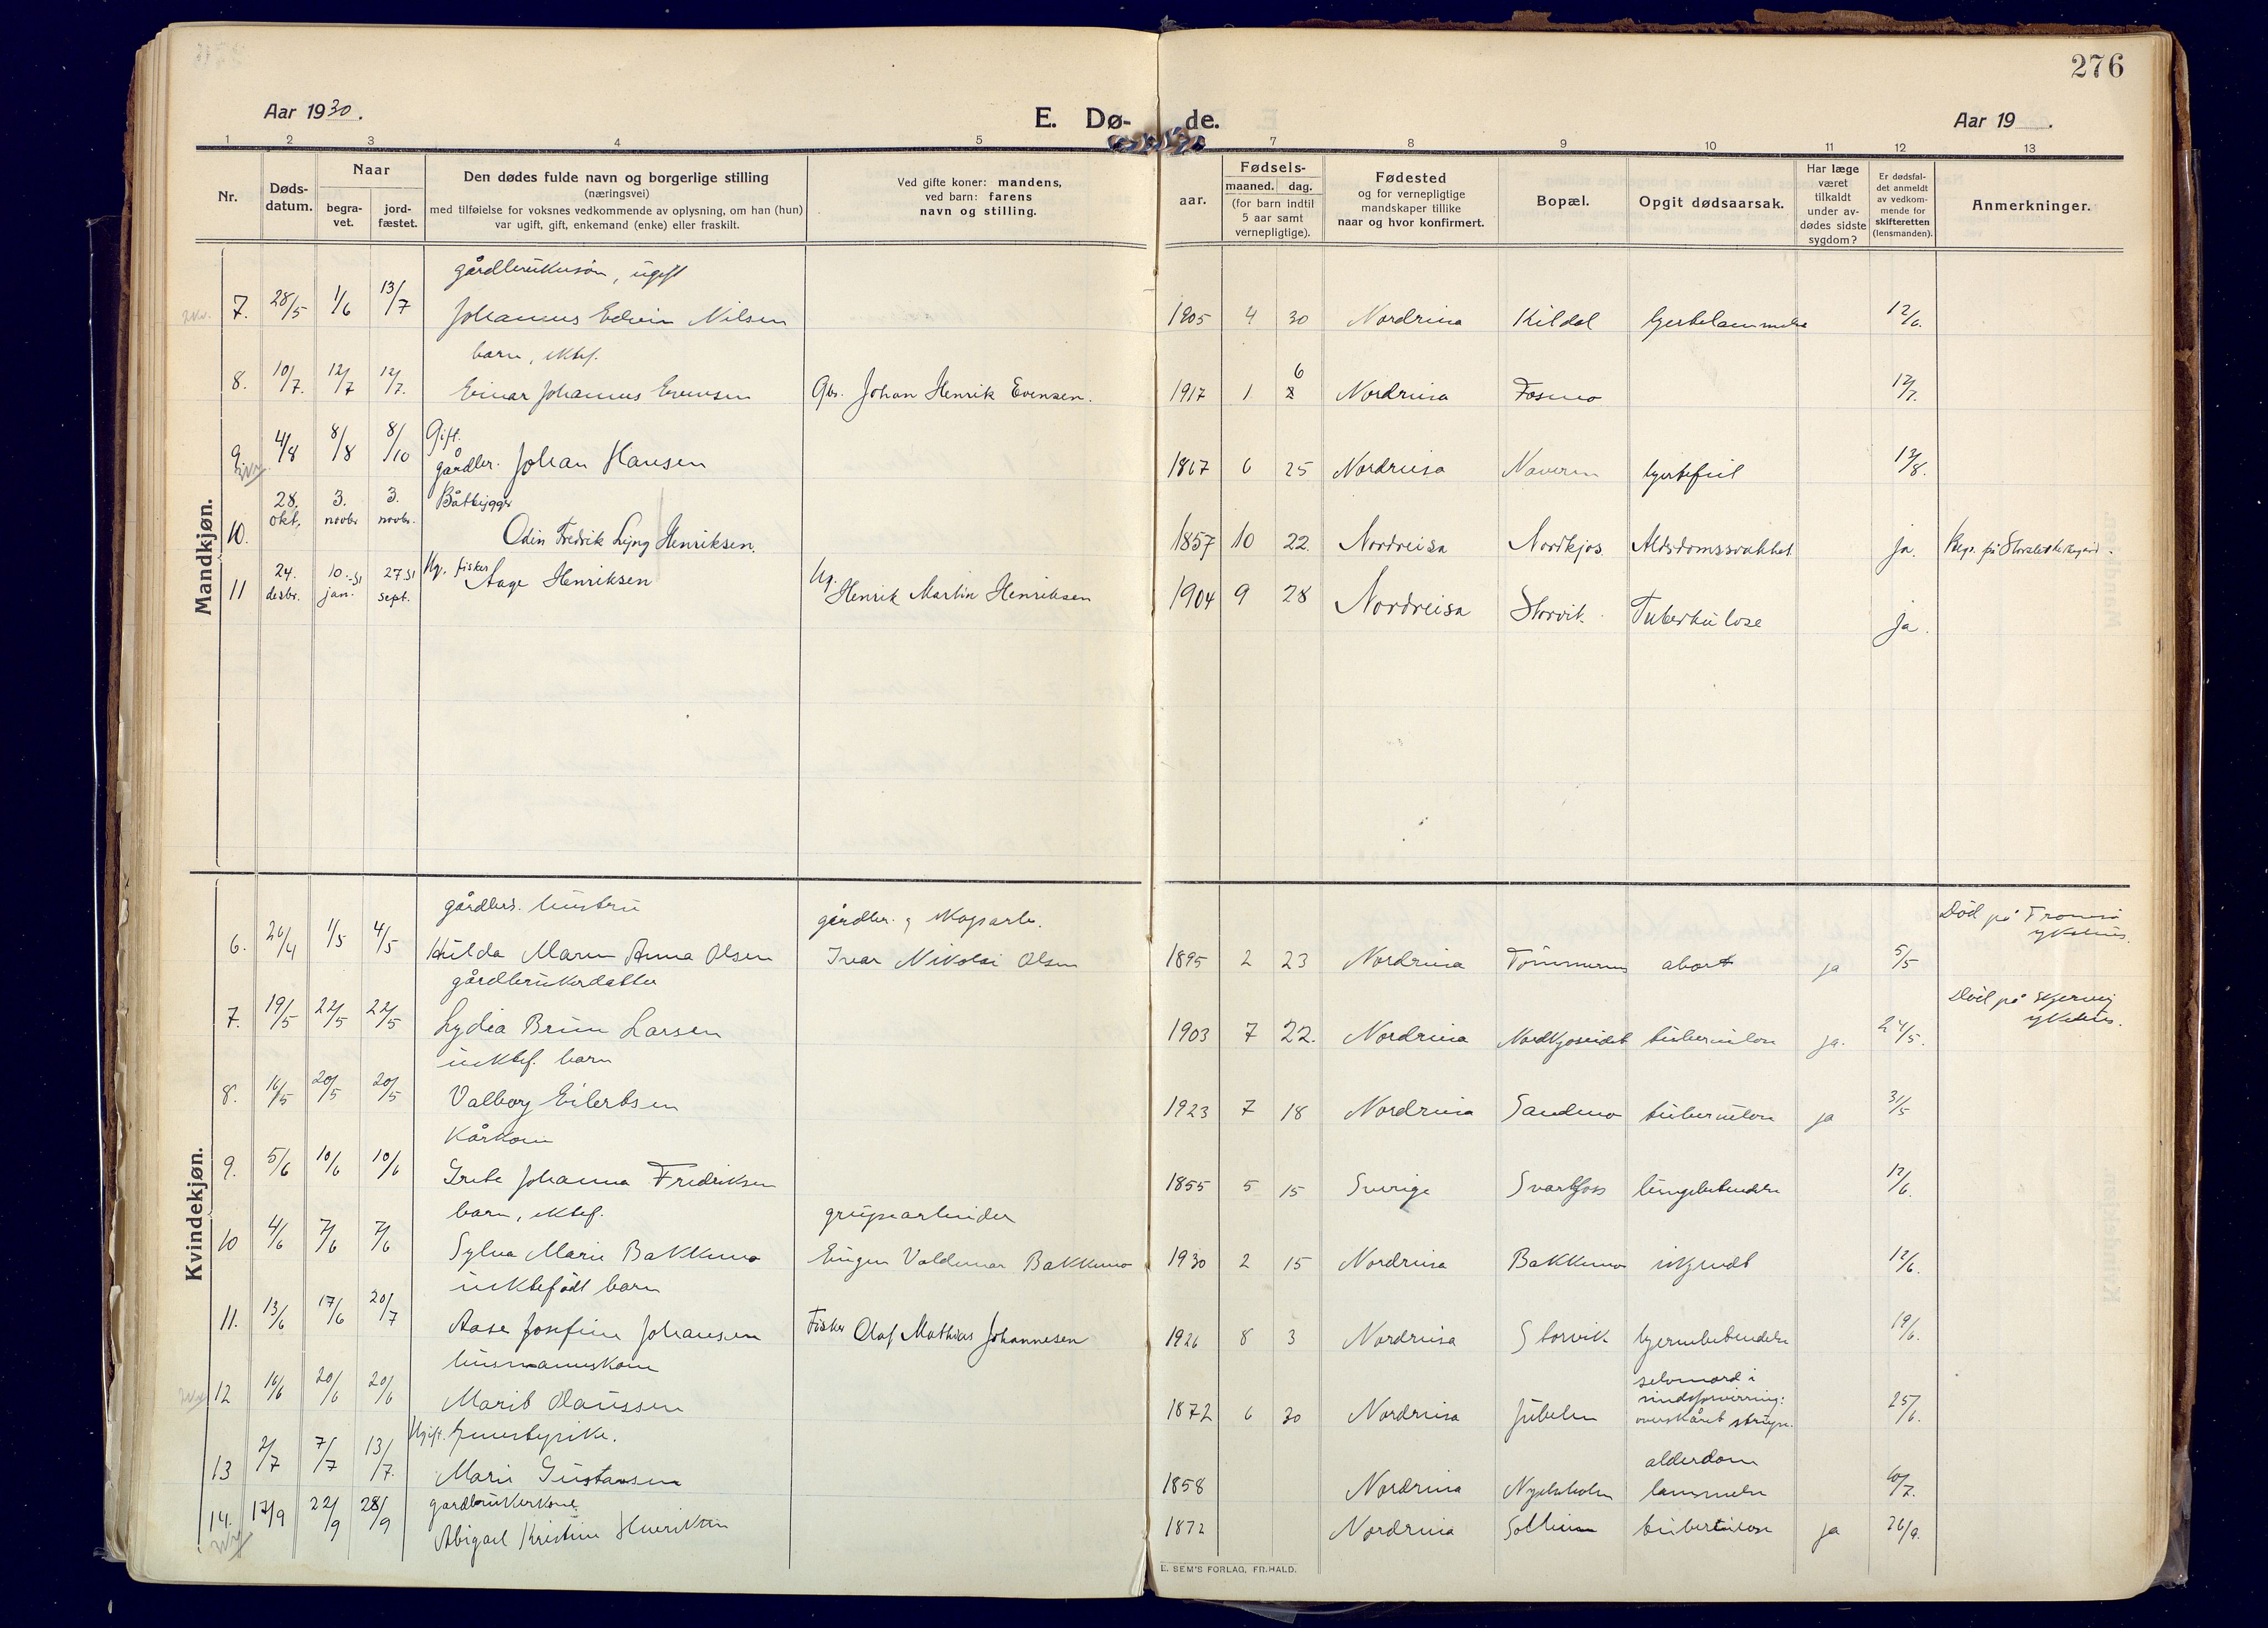 276
Aar 1930.
E. Dø- de.
Aar 19 .
1 2 3 4 5 7 8 9 10 11 12 13
Nr.
Døds-
datum.
Naar
begra-
vet.
jord-
fæstet.
Den dødes fulde navn og borgerlige stilling
(næringsvei)
med tilføielse for voksnes vedkommende av oplysning, om han (hun)
var ugift, gift, enkemand (enke) eller fraskilt.
Ved gifte koner: mandens,
ved barn: farens
navn og stilling.
aar.
Fødsels-
maaned. dag.
(for barn indtil
5 aar samt
vernepligtige).
Fødested
og for vernepligtige
mandskaper tillike
naar og hvor konfirmert.
Bopæl.
Opgit dødsaarsak.
Har læge
været
tilkaldt
under av-
dødes sidste
sygdom?
Er dødsfal-
det anmeldt
av vedkom-
mende for
skifteretten
(lensmanden).
Anmerkninger.
Mandkjøn.
gårdbrukersøn, ugift
7. 28/5 1/6 13/7 Johannes Edvin Nilsen 1905 4 30 Nordreisa Kildal hjertelammelse 12/6.
barn, ektef.
8. 10/7. 12/7 12/7. Einar Johannes Evensen Gbr. Johan Henrik Evensen. 1917 1 6 Nordreisa Fosmo 12/7.
Gift.
9. 4/8 8/8 8/10 gårdbr. Johan Hansen 1867 6 25 Nordreisa Naveren hjertefeil 12/8.
Båtbygger
10. 28. okt. 3. novbr. 3. novbr. Odin Fredrik Lyng Henriksen. 1857 10 22. Nordreisa Nordkjos Alderdomssvakhet ja. Begr. på Storslett kirkegård.
11 24. desbr. 10.-31 jan. 27.31 sept. Ug. fisker Aage Henriksen Ug. Henrik Martin Henriksen 1904 9 28 Nordreisa Storvik. Tuberkulose ja.
Kvindekjøn.
gårdbrs. hustru gårdbr. og skogsarb. Död på Tromsö sykehus.
6. 26/4 1/5 4/5 Hulda Maren Anna Olsen Ivar Nikolai Olsen 1895 2 23 Nordreisa Tömmernes abort ja 5/5
gårdbrukerdatter Död på Skjervöy sykehus.
7. 19/5 22/5 22/5 Lydia Brun Larsen 1903 7 22. Nordreisa Nordkjoseidet tuberculose ja. 24/5.
uektef. barn
8. 16/5 20/5 20/5 Valborg Eilertsen 1923 7 18 Nordreisa Sandmo tuberculose ja 31/5
Kårkone
9. 5/6 10/6 10/6 Grete Johanna Fredriksen 1855 5 15 Sverige Svartfoss lungebetendelse 12/6.
barn, ektef. grubearbeider
10 4/6 7/6 7/6 Sylvia Marie Bakkemo Eugen Valdemar Bakkemo 1930 2 15 Nordreisa Bakkemo ukjendt 12/6.
uektefödt barn
11. 13/6 17/6 20/7 Aase Josefine Johansen Fisker Olaf Mathias Johannesen 1926 8 3 Nordreisa Storvik hjernebetendelse 19/6.
husmannskone
12 16/6 20/6 20/6 Marit Olaussen 1872 6 30 Nordreisa Jubelen selvmord i sindsforvirring: overskåret strupe. 25/6.
Ugift.
13 2/7 7/7 13/7. Marie Gustavsen 1858 Nordreisa alderdom lammelse 10/7.
gardbrukerkone
14. 17/9 22/9 28/9 Abigael Kristine Henriksen 1872 Nordreisa tuberkulose ja 26/9.
E. SEM'S FORLAG, FR.HALD.